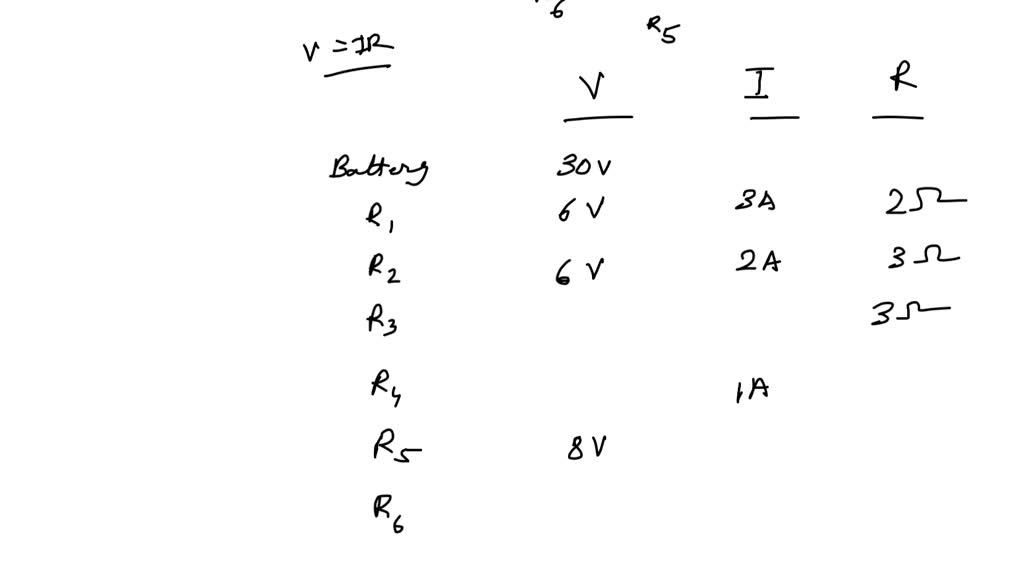 6
R5
V = IR
V I R
Battery 30V
R1 6V 3A 2Ω
R2 6V 2A 3Ω
R3 3Ω
R4 1A
R5 8V
R6